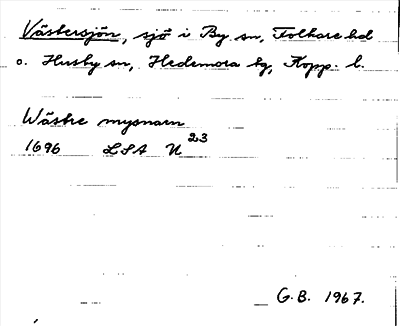 Västersjön, sjö i By sn, Folkare hd
o. Husby sn, Hedemora tg, Kopp. l.
Wästre mysnarn
1696 LSA U 23
G.B. 1967.